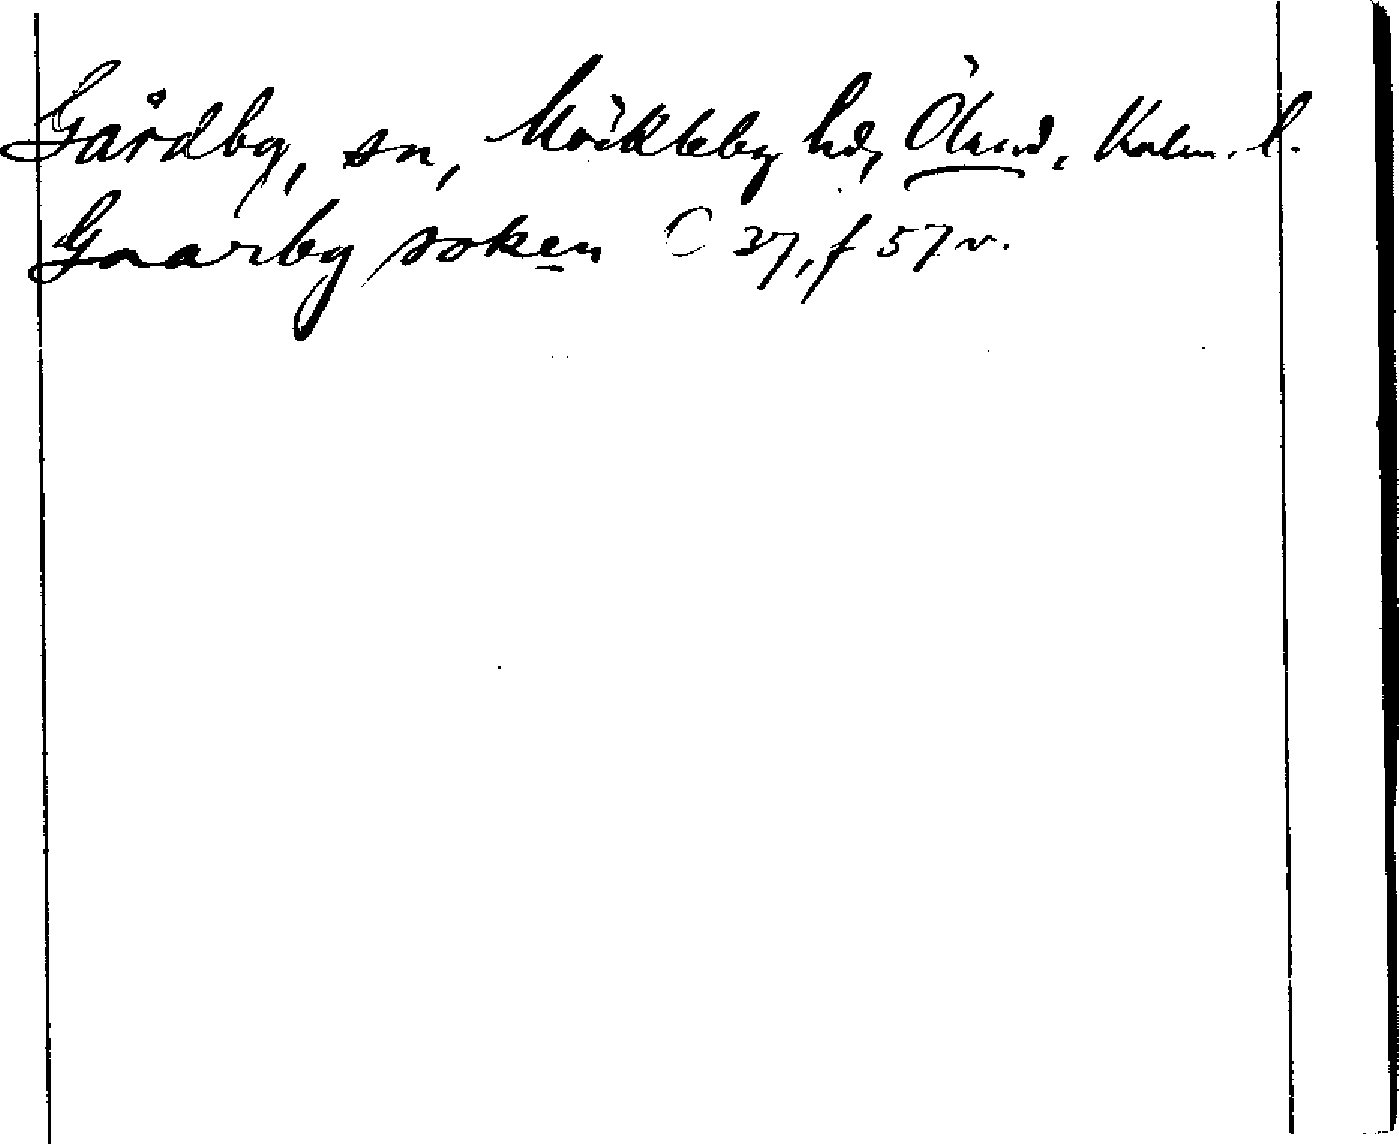 Gårdby, sn, Möckleby hd, Öland, Kalm. l.
Gaarby soken C 37, f 57 v.